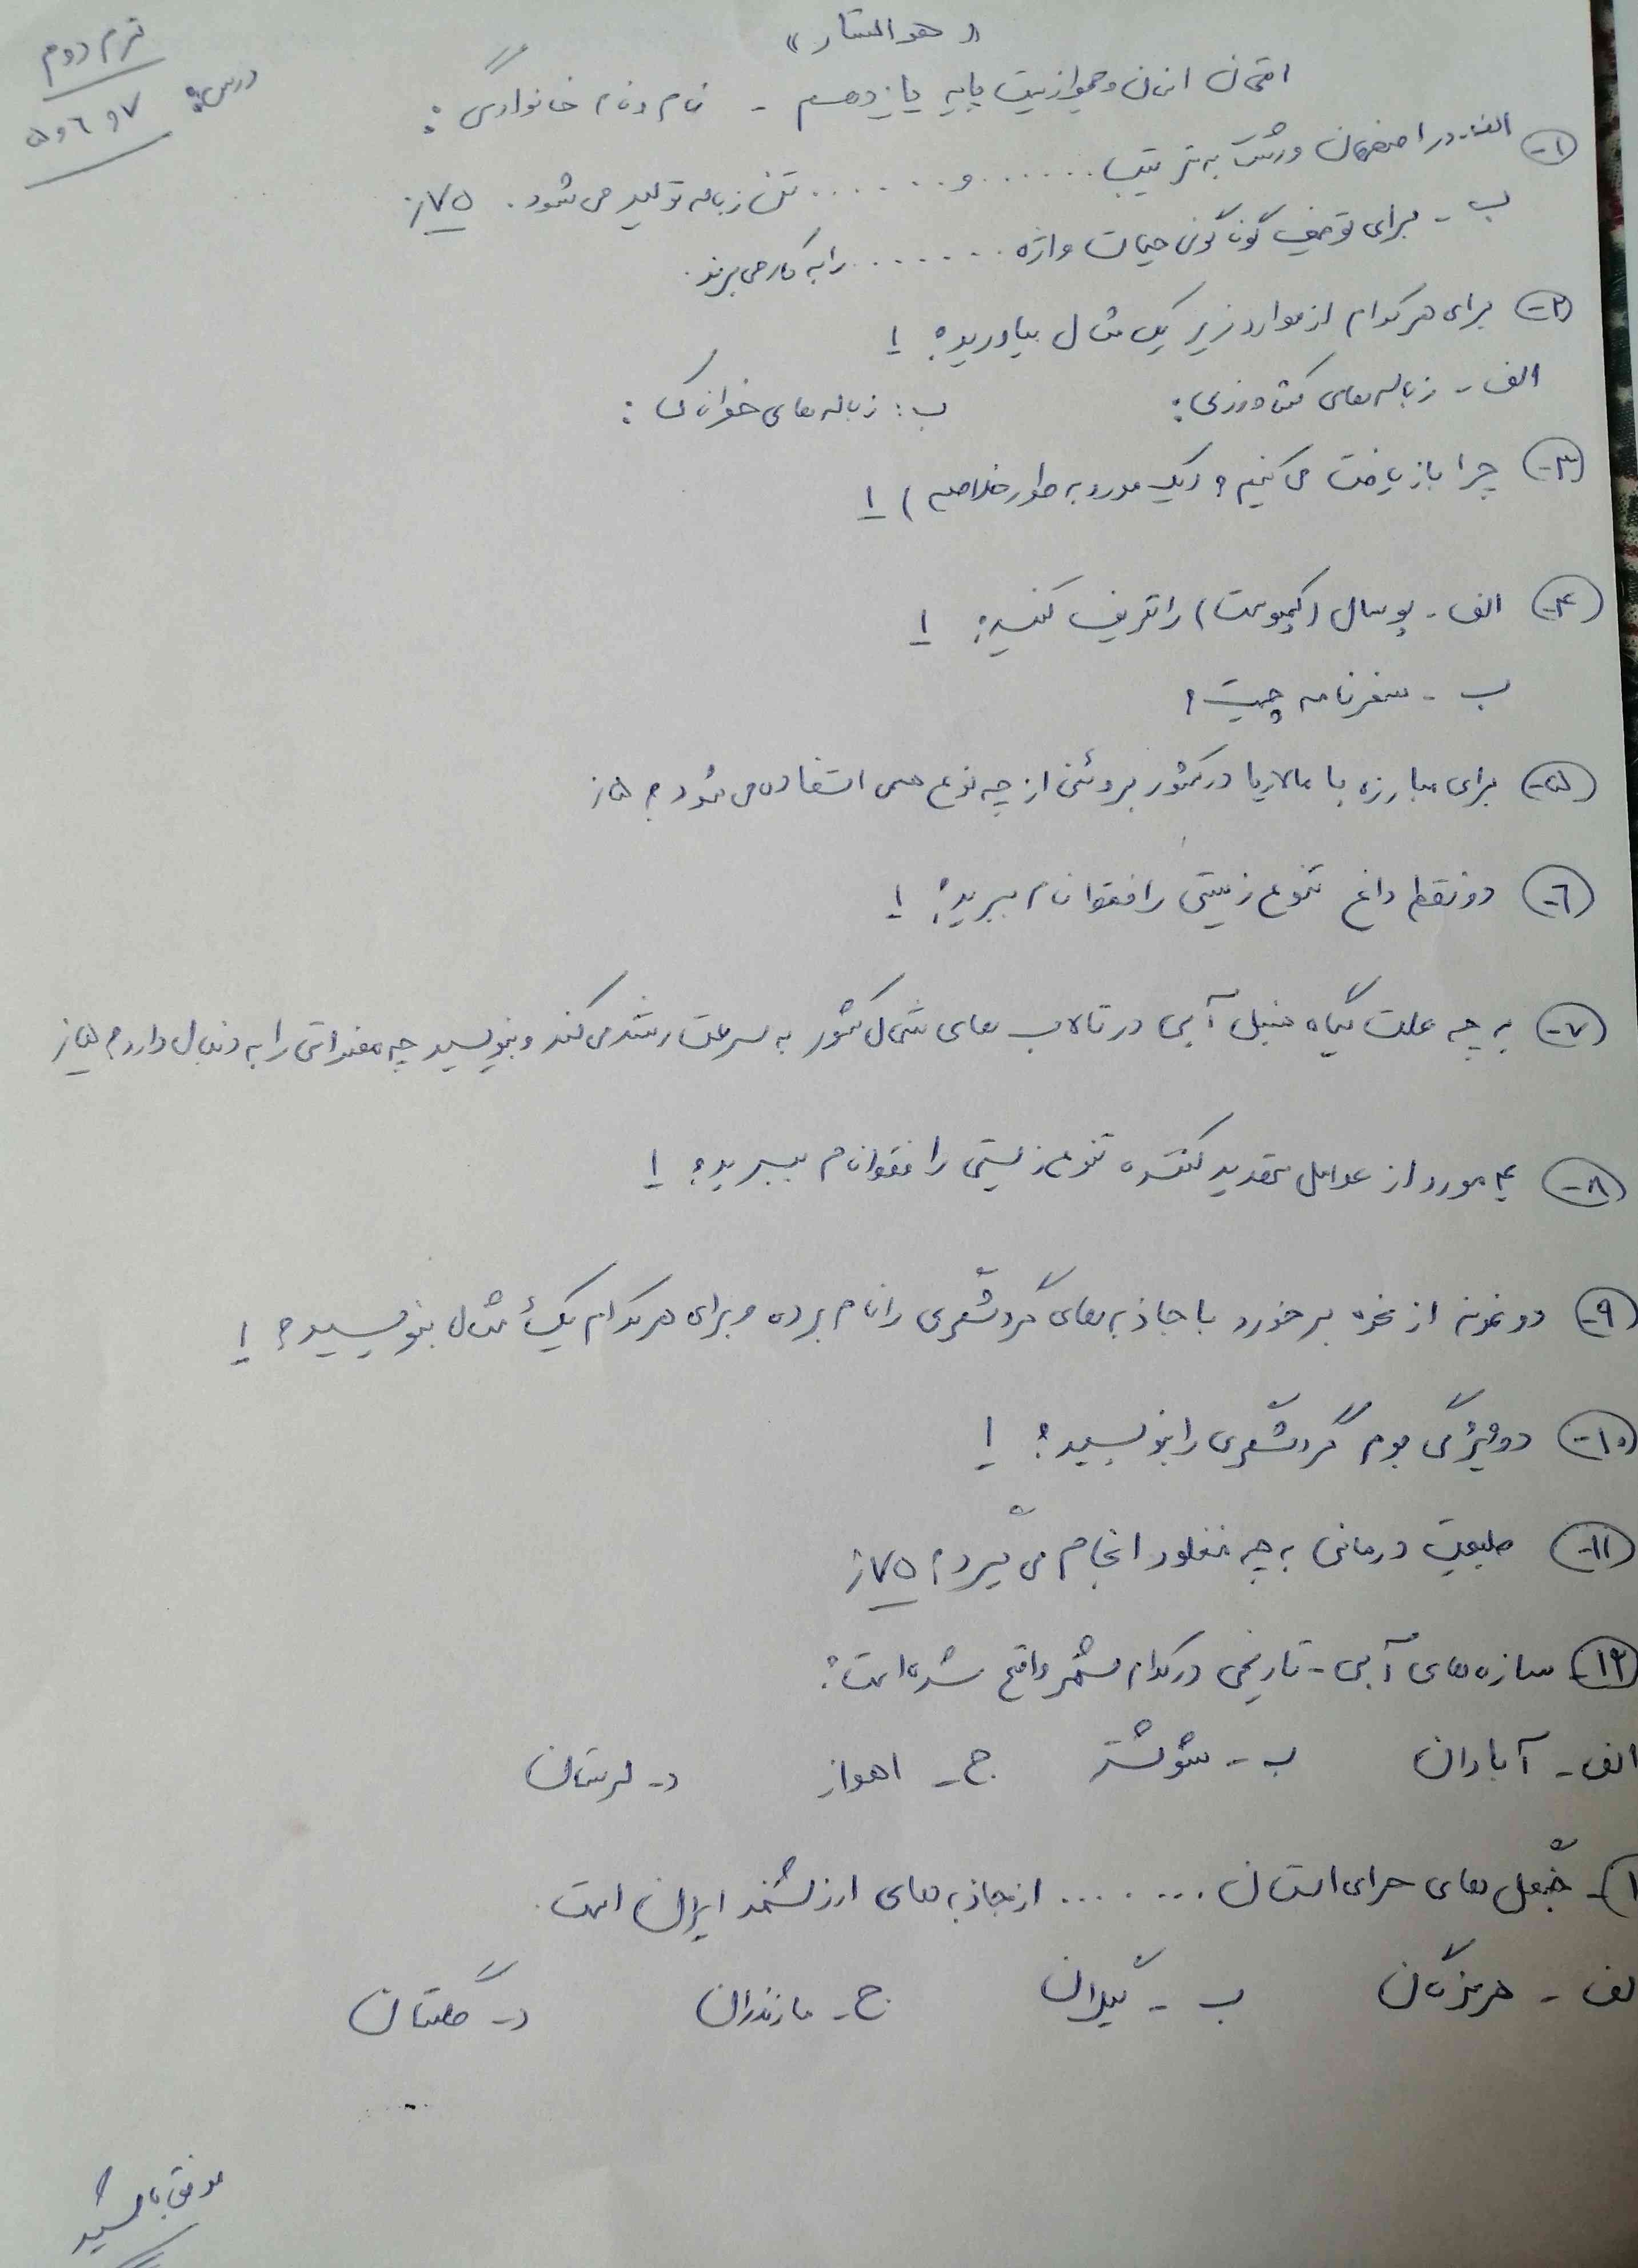 « هوالستار »
ترم دوم
امتحان انسان و محیط زیست پایه یازدهم - نام و نام خانوادگی :
درس: ۵ و ۶ و ۷
۱- الف - در اصفهان و رشت به ترتیب ...... و ...... تن زباله تولید می شود. ۷۵/.
ب - برای توصیف گوناگونی حیات واژه ...... را به کار می برند.
۲- برای هر کدام از موارد زیر یک مثال بیاورید؟ ۱
الف - زباله های کشاورزی: ب: زباله های خوراکی :
۳- چرا بازیافت می کنیم؟ (یک مورد به طور خلاصه) ۱
۴- الف - پوسال (کمپوست) را تعریف کنید؟ ۱
ب - سفرنامه چیست؟
۵- برای مبارزه با مالاریا در کشور برونئی از چه نوع سمی استفاده می شود؟ ۵/.
۶- دو نقطه داغ تنوع زیستی را فقط نام ببرید؟ ۱
۷- به چه علت گیاه سنبل آبی در تالاب های شمال کشور به سرعت رشد می کند و بنویسید چه مضراتی را به دنبال دارد؟ ۵/.
۸- ۴ مورد از عوامل تهدید کننده تنوع زیستی را فقط نام ببرید؟ ۱
۹- دو نمونه از نحوه برخورد با جاذبه های گردشگری را نام برده و برای هر کدام یک مثال بنویسید؟ ۱
۱۰- دو ویژگی بوم گردشگری را بنویسید؟ ۱
۱۱- طبیعت درمانی به چه منظور انجام می گیرد؟ ۷۵/.
۱۲- سازه های آبی - تاریخی در کدام شهر واقع شده است؟
الف - آبادان ب - شوشتر ج - اهواز د - لرستان
۱ - جنگل های حرای استان ....... از جاذبه های ارزشمند ایران است.
الف - هرمزگان ب - گیلان ج - مازندران د - گلستان
موفق باشید